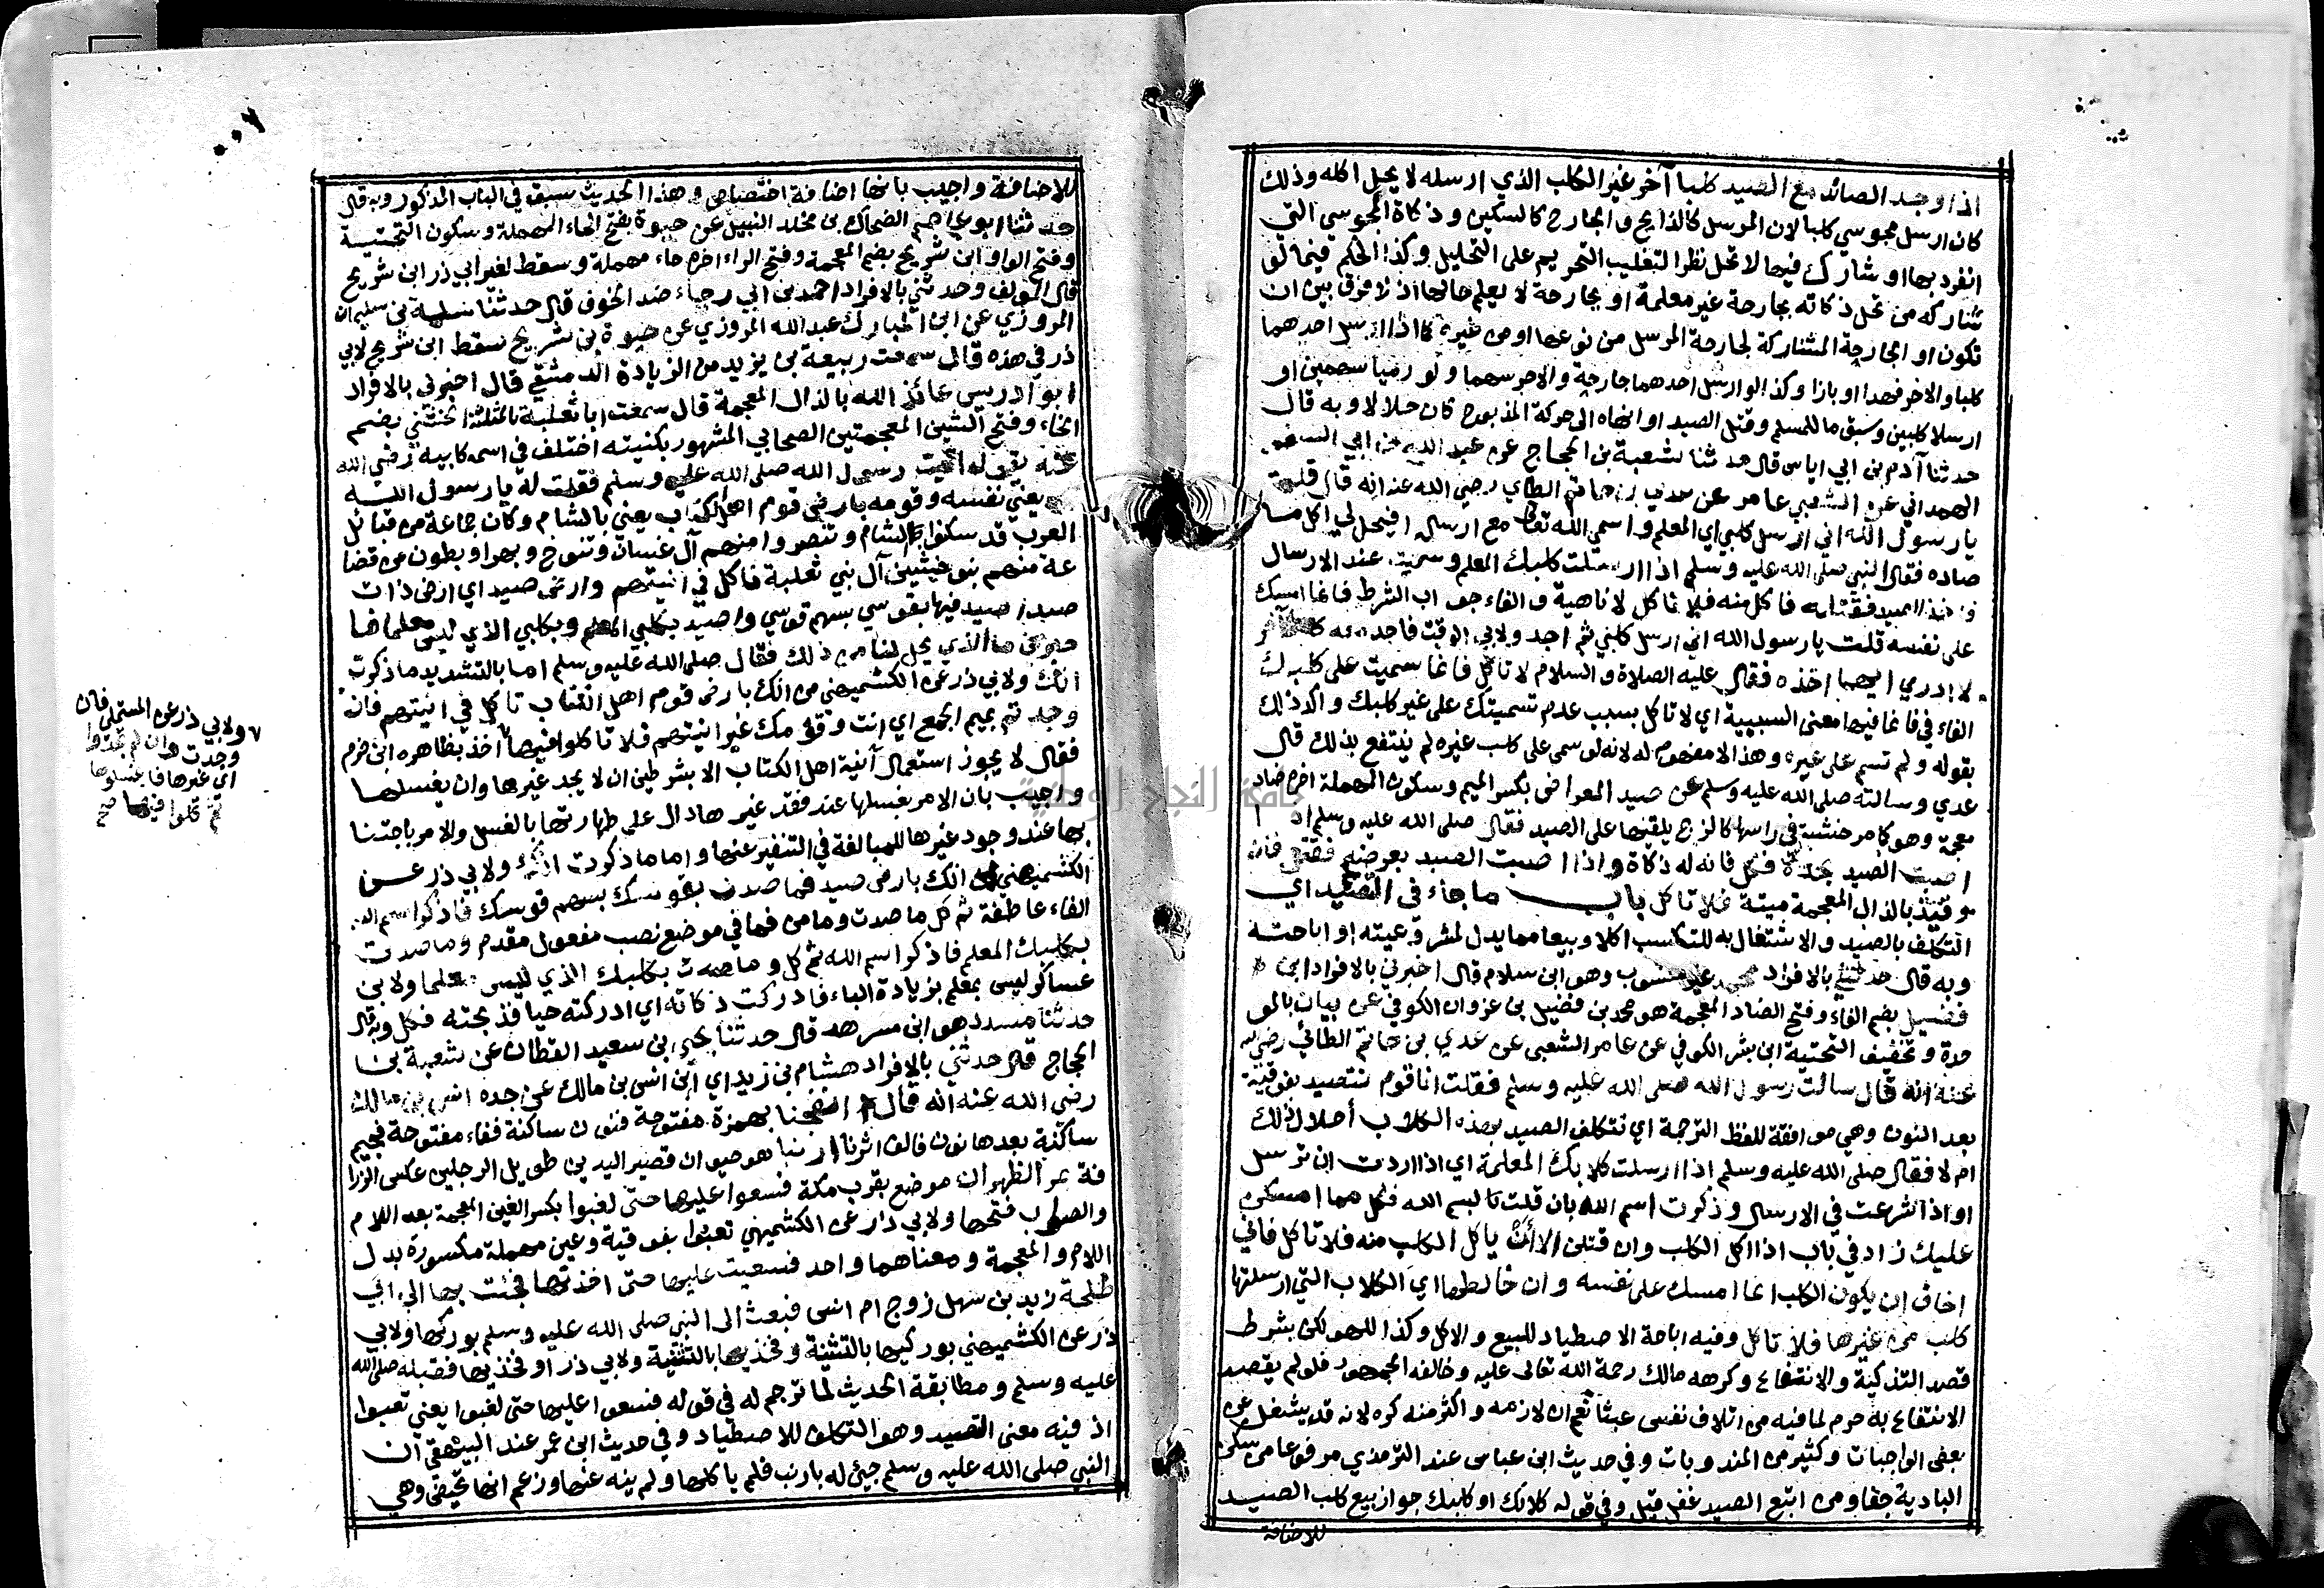 اذا وجد الصائد مع الصيد كلبا آخر غير الكلب الذي ارسله لا يحل اكله وذلك
كان ارسل مجوسي كلبا لان المرسل كالذابح والجارح كالسكين وذكاة المجوسي التي
انفرد بها او شارك فيها لا تحل نظرا لتغليب التحريم على التحليل وكذا الحكم فيما لو
شاركه من تحل ذكاته بجارحة غير معلمة او بجارحة لا يعلم حالها اذ لا فرق بين ان
تكون او الجارحة المشاركة لجارحة المرسل من نوعها او من غيره كما اذا ارسل احدهما
كلبا والاخر فهدا او بازا وكذا لو ارسل احدهما جارحة والاخر سهما ولو رميا سهمين او
ارسلا كلبين وسبق ما للمسلم وقتل الصيد او انهاه الى حركة المذبوح كان حلالا وبه قال
حدثنا آدم بن ابي اياس قال حدثنا شعبة بن الحجاج عن عبد الله بن ابي السفر
الهمداني عن الشعبي عامر عن عدي بن حاتم الطاي رضي الله عنه انه قال قلت
يا رسول الله اني ارسل كلبي اي المعلم واسمي الله تعالى مع ارساله افيحل لي اكل ما
صاده فقال النبي صلى الله عليه وسلم اذا ارسلت كلبك المعلم وسميت عند الارسال
فاخذ الصيد فقتله فاكل منه فلا تاكل لا ناهية والفاء جواب الشرط فانما امسك
على نفسه قلت يا رسول الله اني ارسل كلبي ثم اجد ولابي الوقت فاجد معه كلبا آخر
لا ادري ايهما اخذه فقال عليه الصلاة والسلام لا تاكل فانما سميت على كلبك
الفاء في فانما فيها معنى السببية اي لا تاكل بسبب عدم تسميتك على غير كلبك واكد ذلك
بقوله ولم تسم على غيره وهذا لا مفهوم له لانه لو سمى على كلب غيره لم ينتفع بذلك قال
عدي وسالته صلى الله عليه وسلم عن صيد المعراض بكسر الميم وسكون المهملة اخره ضاد
معجمة وهو كامر خشبة في راسها كالزج يلقيها على الصيد فقال صلى الله عليه وسلم اذا
اصبت الصيد بحده فكل فانه له ذكاة واذا اصبت الصيد بعرضه فقتل فانه
موقيذ بالذال المعجمة ميتة فلا تاكل باب ما جاء في التصيد اي
التكلف بالصيد والاشتغال به للتكسب اكلا وبيعا مما يدل لمشروعيته او اباحته
وبه قال حدثني بالافراد محمد غير منسوب وهو ابن سلام قال اخبرني بالافراد ابن
فضيل بضم الفاء وفتح الضاد المعجمة هو محمد بن فضيل بن غزوان الكوفي عن بيان بالمو
حدة وتخفيف التحتية ابن بشر الكوفي عن عامر الشعبي عن عدي بن حاتم الطائي رضي الله
عنه انه قال سالت رسول الله صلى الله عليه وسلم فقلت انا قوم نتصيد بفوقية
بعد النون وهي موافقة للفظ الترجمة اي نتكلف الصيد بهذه الكلاب أحلال ذلك
ام لا فقال صلى الله عليه وسلم اذا ارسلت كلابك المعلمة اي اذا اردت ان ترسل
او اذا شرعت في الارسال وذكرت اسم الله بان قلت بسم الله فكل مما امسكن
عليك زاد في باب اذا اكل الكلب وان قتلن الا أن ياكل الكلب منه فلا تاكل فاني
اخاف ان يكون الكلب انما امسك على نفسه وان خالطها اي الكلاب التي ارسلتها
كلب من غيرها فلا تاكل وفيه اباحة الاصطياد للبيع والاكل وكذا للهو لكن بشرط
قصد التذكية والانتفاع وكرهه مالك رحمة الله تعالى عليه وخالفه الجمهور فلو لم يقصد
الانتفاع به حرم لما فيه من اتلاف نفس عبثا نعم ان لازمه واكثر منه كره لانه قد يشغل عن
بعض الواجبات وكثير من المندوبات وفي حديث ابن عباس عند الترمذي مرفوعا من سكن
البادية جفا ومن اتبع الصيد غفل قيل وفي قوله كلابك او كلبك جواز بيع كلب الصيد
للاضافة
للاضافة واجيب بانها اضافة اختصاص وهذا الحديث سبق في الباب المذكور وبه قال
حدثنا ابو عاصم الضحاك بن مخلد النبيل عن حيوة بفتح الحاء المهملة وسكون التحتية
وفتح الواو ابن شريح بضم المعجمة وفتح الراء اخره حاء مهملة وسقط لغير ابي ذر ابن شريح
قال المؤلف وحدثني بالافراد احمد بن ابي رجاء ضد الخوف قال حدثنا سلمة بن سليمان
المروزي عن ابن المبارك عبد الله المروزي عن حيوة بن شريح سقط ابن شريح لابي
ذر في هذه قال سمعت ربيعة بن يزيد من الزيادة الدمشقي قال اخبرني بالافراد
ابو ادريس عائذ الله بالذال المعجمة قال سمعت ابا ثعلبة بالمثلثة الخشني بضم
الخاء وفتح الشين المعجمتين الصحابي المشهور بكنيته اختلف في اسمه كابيه رضي الله
عنه يقول اتيت رسول الله صلى الله عليه وسلم فقلت له يا رسول الله
يعني نفسه وقومه بارض قوم اهل كتاب يعني بالشام وكان جماعة من قبائل
العرب قد سكنوا بالشام وتنصروا منهم آل غسان وتنوخ وبهرا وبطون من قضا
عة منهم بنو خشين آل بني ثعلبة فناكل في آنيتهم وارض صيد اي ارض ذات
صيد اصيد فيها بقوسي بسهم قوسي واصيد بكلبي المعلم وبكلبي الذي ليس معلما فا
خبرني ما الذي يحل لنا من ذلك فقال صلى الله عليه وسلم اما بالتشديد ما ذكرت
انك ولابي ذر عن الكشميهني من انك بارض قوم اهل الكتاب تاكل في انيتهم فان
وجدتم بميم الجمع اي انت وقومك غير انيتهم فلا تاكلوا فيها اخذ بظاهره ابن حزم
فقال لا يجوز استعمال آنية اهل الكتاب الا بشرطين ان لا يجد غيرها وان يغسلها
واجيب بان الامر بغسلها عند فقد غيرها دال على طهارتها بالغسل والامر باجتنا
بها عند وجود غيرها للمبالغة في التنفير عنها واما ما ذكرت انك ولابي ذر عن
الكشميهني من انك بارض صيد فما صدت بقوسك بسهم قوسك فاذكر اسم الله
الفاء عاطفة ثم كل ما صدت وما من فما في موضع نصب مفعول مقدم وما صدت
بكلبك المعلم فاذكر اسم الله ثم كل وما صدت بكلبك الذي ليس معلما ولابن
عساكر ليس بمعلم بزيادة الباء فادركت ذكاته اي ادركته حيا فذبحته فكل وبه قال
حدثنا مسدد هو ابن مسرهد قال حدثنا يحيى بن سعيد القطان عن شعبة بن
الحجاج قال حدثني بالافراد هشام بن زيد اي ابن انس بن مالك عن جده انس بن مالك
رضي الله عنه انه قال انفجنا بهمزة مفتوحة فنون ساكنة ففاء مفتوحة فجيم
ساكنة بعدها نون فالف اثرنا ارنبا هو حيوان قصير اليدين طويل الرجلين عكس الزرا
فة بمر الظهران موضع بقرب مكة فسعوا عليها حتى لغبوا بكسر الغين المعجمة بعد اللام
والصواب فتحها ولابي ذر عن الكشميهني تعبوا بفوقية وعين مهملة مكسورة بدل
اللام والمعجمة ومعناهما واحد فسعيت عليها حتى اخذتها فجئت بها الى ابي
طلحة زيد بن سهل زوج ام انس فبعث الى النبي صلى الله عليه وسلم بوركها ولابي
ذر عن الكشميهني بوركيها بالتثنية وفخذيها بالتثنية ولابي ذر او فخذيها فقبله صلى الله
عليه وسلم ومطابقة الحديث لما ترجم له في قوله فسعوا عليها حتى لغبوا يعني تعبوا
اذ فيه معنى التصيد وهو التكلف للاصطياد وفي حديث ابن عمر عند البيهقي ان
النبي صلى الله عليه وسلم جئ له بارنب فلم ياكلها ولم ينه عنها وزعم انها تحيض وهي
ولابي ذر عن المستملي فان
وجدت وان لم تجدوا
اي غيرها فاغسلوها
ثم كلوا فيها صح
جامعة النجاح الوطنية